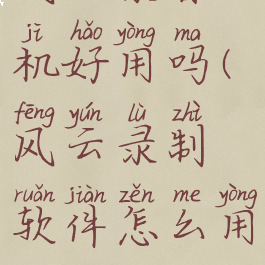 jī hǎo yòng ma
机好用吗(
fēng yún lù zhì
风云录制
ruǎn jiàn zěn me yòng
软件怎么用